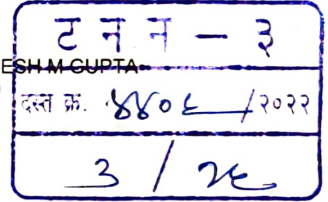 ट न न – ३
ESH M GUPTA
दस्त क्र. ४४०६ /२०२२
३ / २६